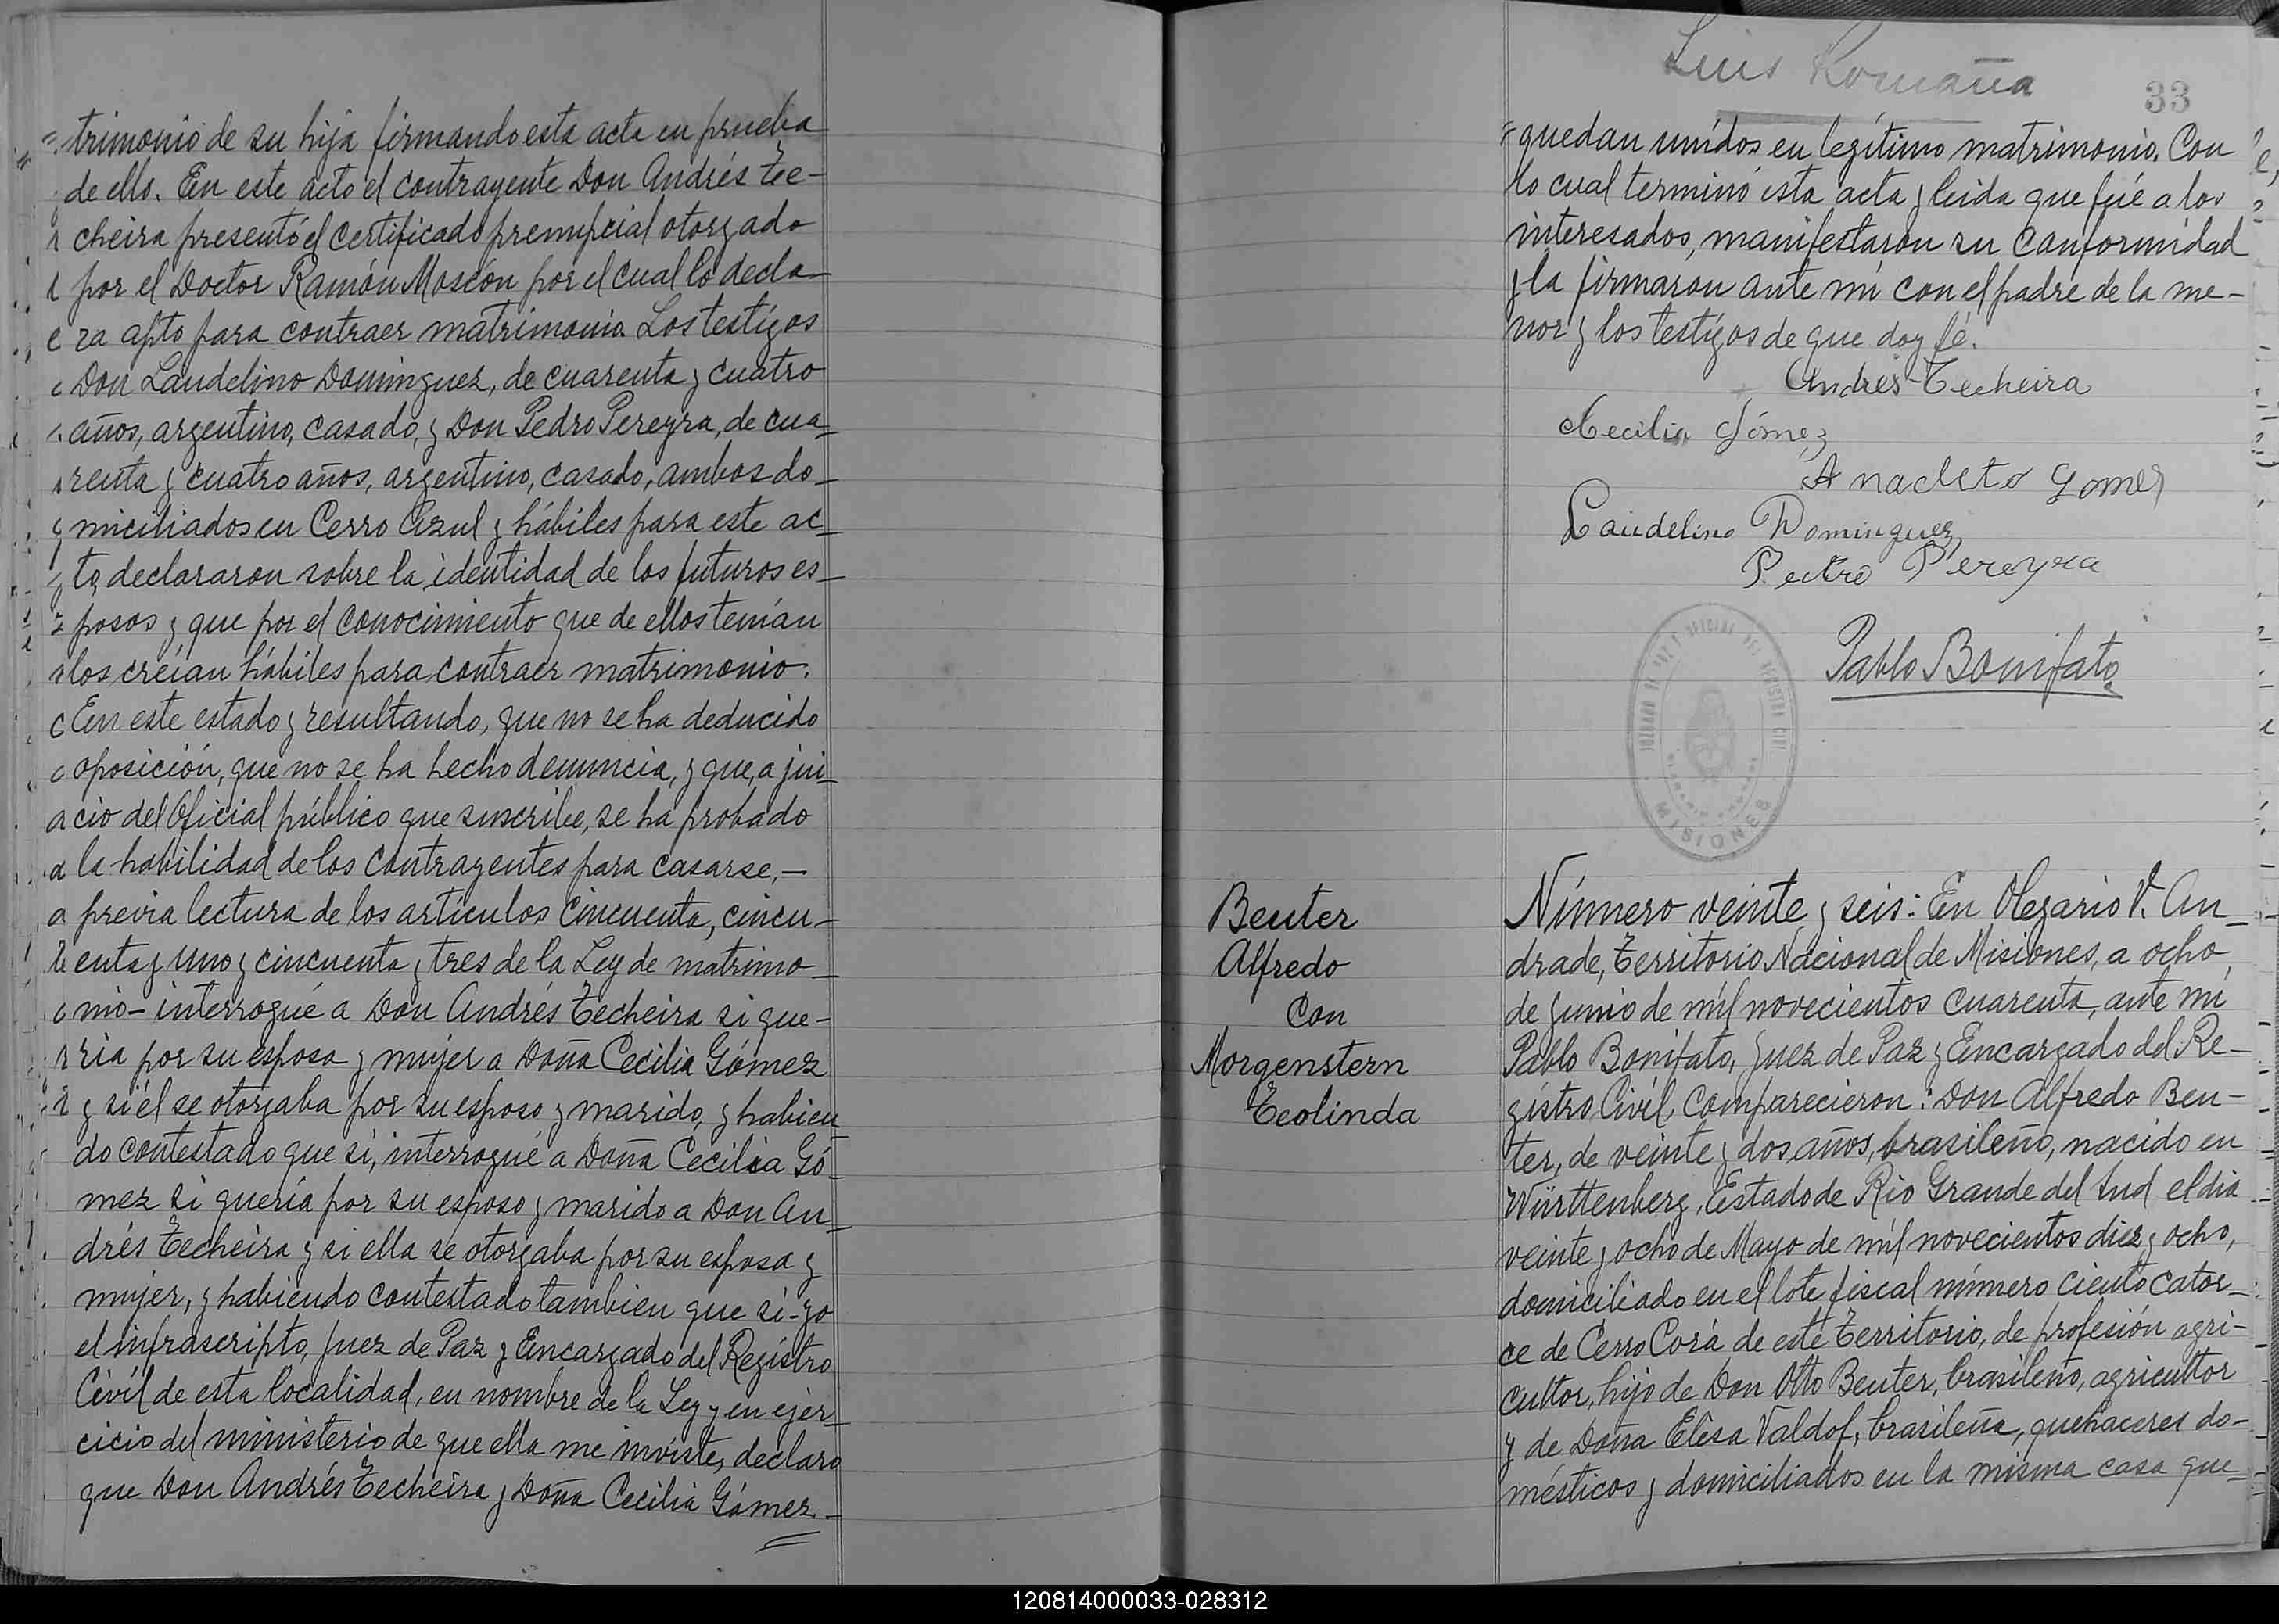 trimonio de su hija firmando esta acta en prueba
de ello. En este acto el contrayente Don Andrés Te-
cheira presentó el certificado prenupcial otorgado
por el Doctor Ramón Moscón por el cual lo decla-
ra apto para contraer matrimonio. Los testigos
Don Laudelino Dominguez, de cuarenta y cuatro
años, argentino, casado, y Don Pedro Pereyra, de cua-
renta y cuatro años, argentino, casado, ambos do-
miciliados en Cerro Azul y hábiles para este ac-
to, declararon sobre la identidad de los futuros es-
posos y que por el conocimiento que de ellos tenían
los creían hábiles para contraer matrimonio.
En este estado y resultando, que no se ha deducido
oposición, que no se ha hecho denuncia, y que, a jui-
cio del Oficial público que suscribe, se ha probado
la habilidad de los contrayentes para casarse,-
previa lectura de los artículos cincuenta, cincu-
enta y uno y cincuenta y tres de la Ley de matrimo-
nio- interrogué a Don Andrés Techeira si que-
ria por su esposa y mujer a Doña Cecilia Gómez
y si él se otorgaba por su esposo y marido, y habien
do contestado que sí, interrogué a Doña Cecilia Gó-
mez si quería por su esposo y marido a Don An-
drés Techeira y si ella se otorgaba por su esposa y
mujer, y habiendo contestado tambien que sí-yo
el infrascripto, Juez de Paz y Encargado del Registro
Civil de esta localidad, en nombre de la Ley y en ejer-
cicio del ministerio de que ella me inviste, declaro
que Don Andrés Techeira y Doña Cecilia Gómez.-
Luis Romaña
33
quedan unidos en legítimo matrimonio. Con
lo cual terminó esta acta y leida que fué a los
interesados, manifestaron su conformidad
y la firmaron ante mí con el padre de la me-
nor y los testigos de que doy fé.
Andrés Techeira
Cecilia Gómez
Anacleto Gomez
Laudelino Dominguez
Pedro Pereyra
Pablo Bonifato
MISIONES
Beuter
Alfredo
Con
Morgenstern
Teolinda
Número veinte y seis: En Olegario V. An-
drade, Territorio Nacional de Misiones, a ocho
de Junio de mil novecientos cuarenta, ante mí
Pablo Bonifato, Juez de Paz y Encargado del Re-
gistro Civil, comparecieron: Don Alfredo Beu-
ter, de veinte y dos años, brasileño, nacido en
Württenberg, Estado de Rio Grande del Sud el dia
veinte y ocho de Mayo de mil novecientos diez y ocho,
domiciliado en el lote fiscal número ciento cator-
ce de Cerro Corá de este Territorio, de profesión agri-
cultor, hijo de Don Otto Beuter, brasileño, agricultor
y de Doña Elisa Valdof, brasileña, quehaceres do-
mésticos y domiciliados en la misma casa que-
120814000033-028312